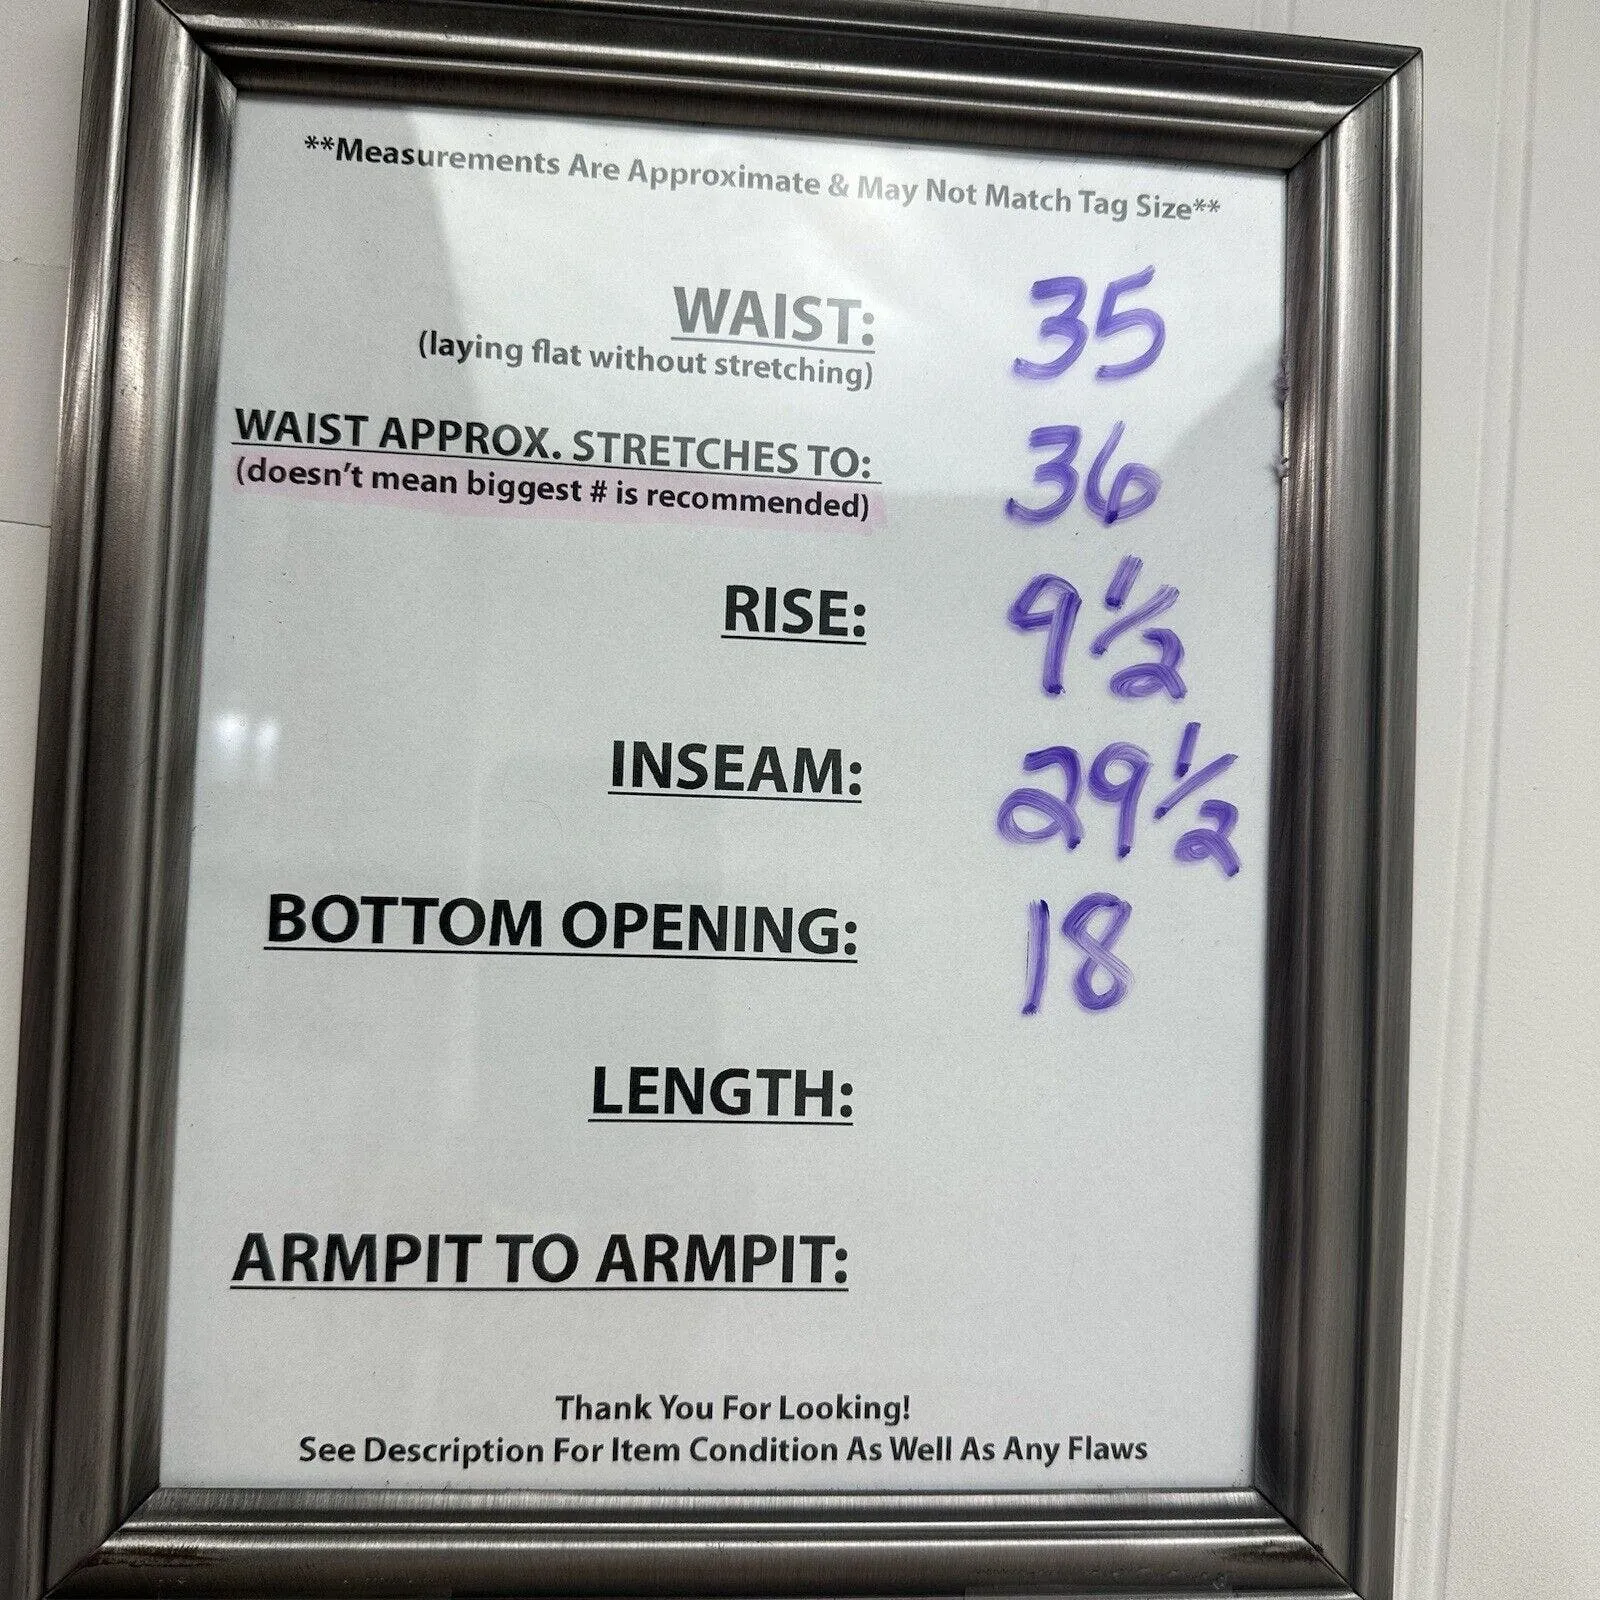 **Measurements Are Approximate & May Not Match Tag Size**
WAIST: 35
(laying flat without stretching)
WAIST APPROX. STRETCHES TO: 36
(doesn't mean biggest # is recommended)
RISE: 9 1/2
INSEAM: 29 1/2
BOTTOM OPENING: 18
LENGTH:
ARMPIT TO ARMPIT:
Thank You For Looking!
See Description For Item Condition As Well As Any Flaws